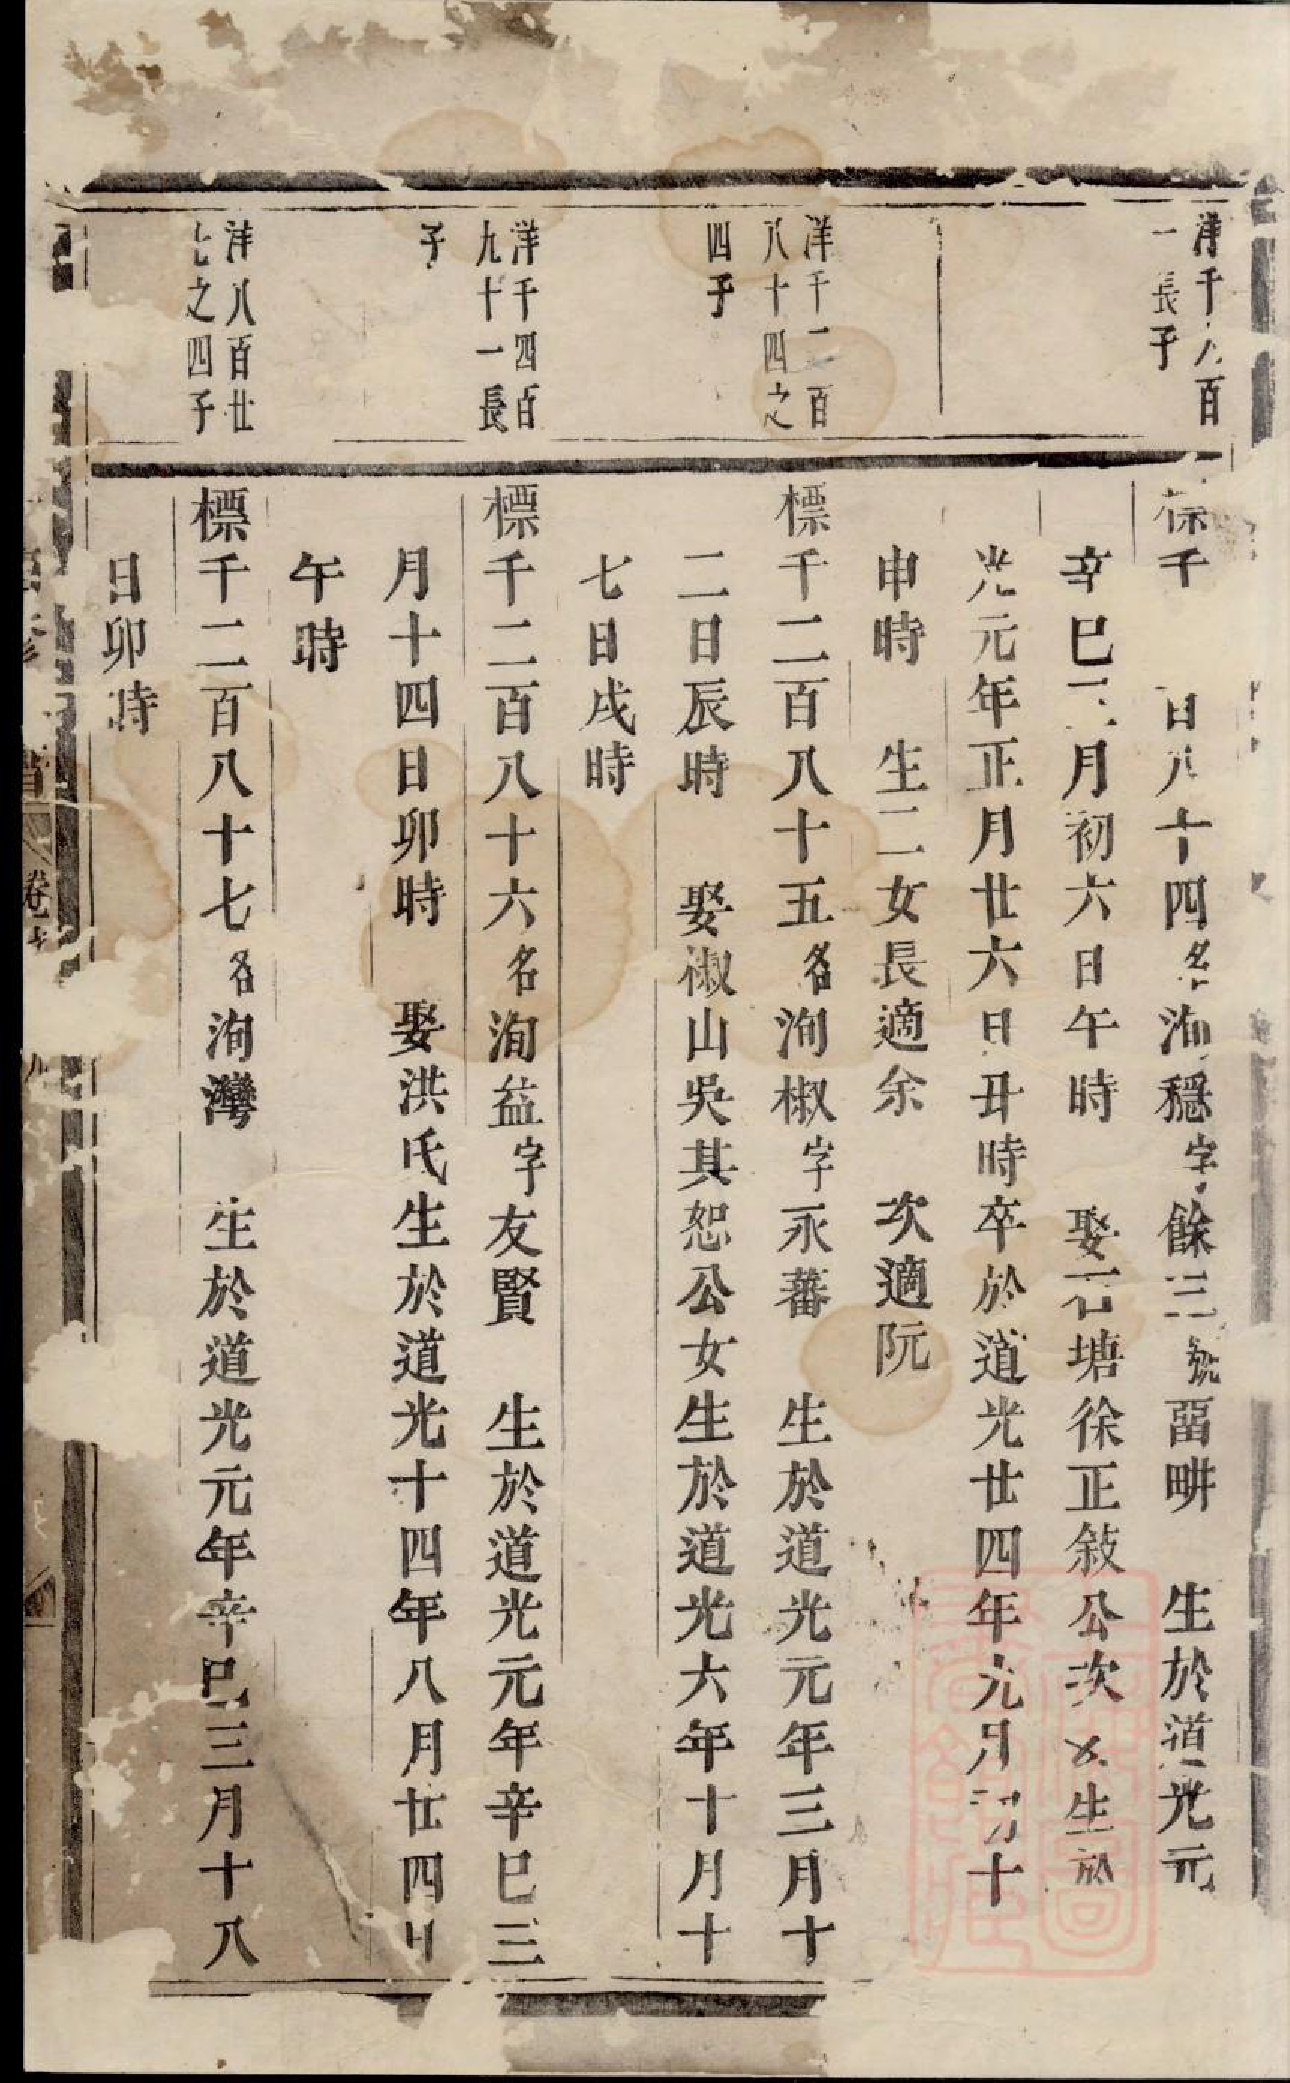 洋千八百
一長子
標千二百八十四名洵穩字餘三號畱畊　生於道光元
辛巳二月初六日午時　娶石塘徐正敍公次女生於
光元年正月廿六日丑時卒於道光廿四年九月初十
申時　生二女長適余　次適阮
洋千二百
八十四之
四子
標千二百八十五名洵椒字永蕃　生於道光元年三月十
二日辰時　娶椒山吳其恕公女生於道光六年十月十
七日戌時
洋千四百
九十一長
子
標千二百八十六名洵益字友賢　生於道光元年辛巳三
月十四日卯時　娶洪氏生於道光十四年八月廿四日
午時
洋八百廿
七之四子
標千二百八十七名洵灣　生於道光元年辛巳三月十八
日卯時